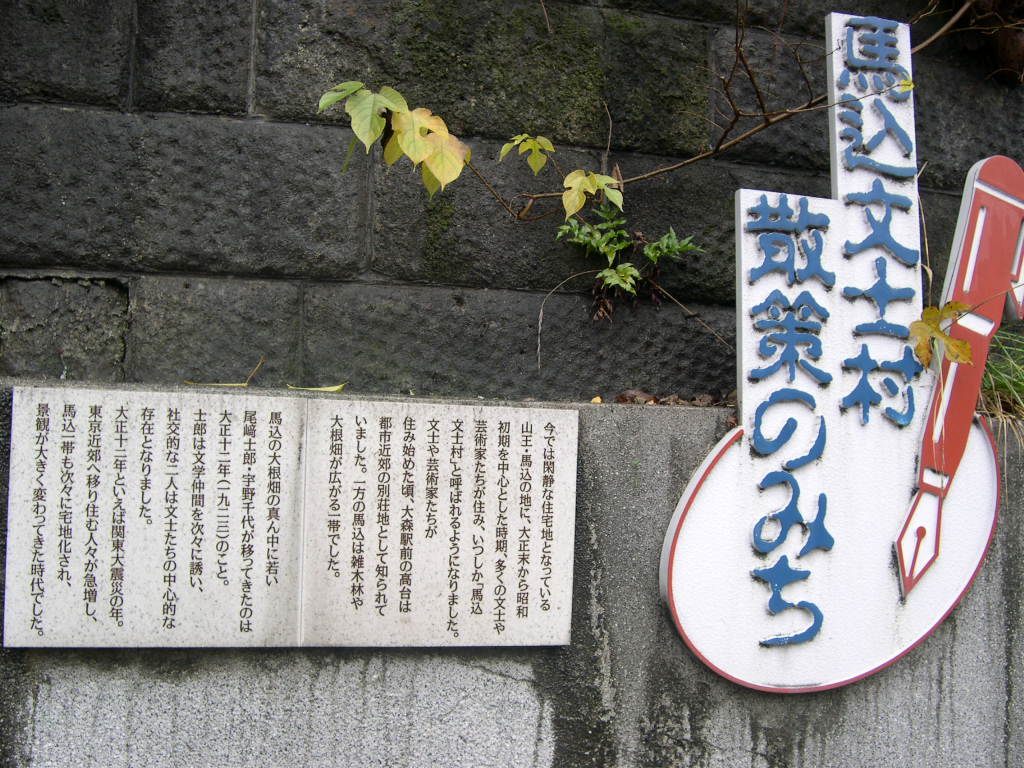 馬込文士村
散策のみち
今では閑静な住宅地となっている
山王・馬込の地に、大正末から昭和
初期を中心とした時期、多くの文士や
芸術家たちが住み、いつしか「馬込
文士村」と呼ばれるようになりました。
文士や芸術家たちが
住み始めた頃、大森駅前の高台は
都市近郊の別荘地として知られて
いました。一方の馬込は雑木林や
大根畑が広がる一帯でした。
馬込の大根畑の真ん中に若い
尾﨑士郎・宇野千代が移ってきたのは
大正十二年(一九二三)のこと。
士郎は文学仲間を次々に誘い、
社交的な二人は文士たちの中心的な
存在となりました。
大正十二年といえば関東大震災の年。
東京近郊へ移り住む人々が急増し、
馬込一帯も次々に宅地化され、
景観が大きく変わってきた時代でした。